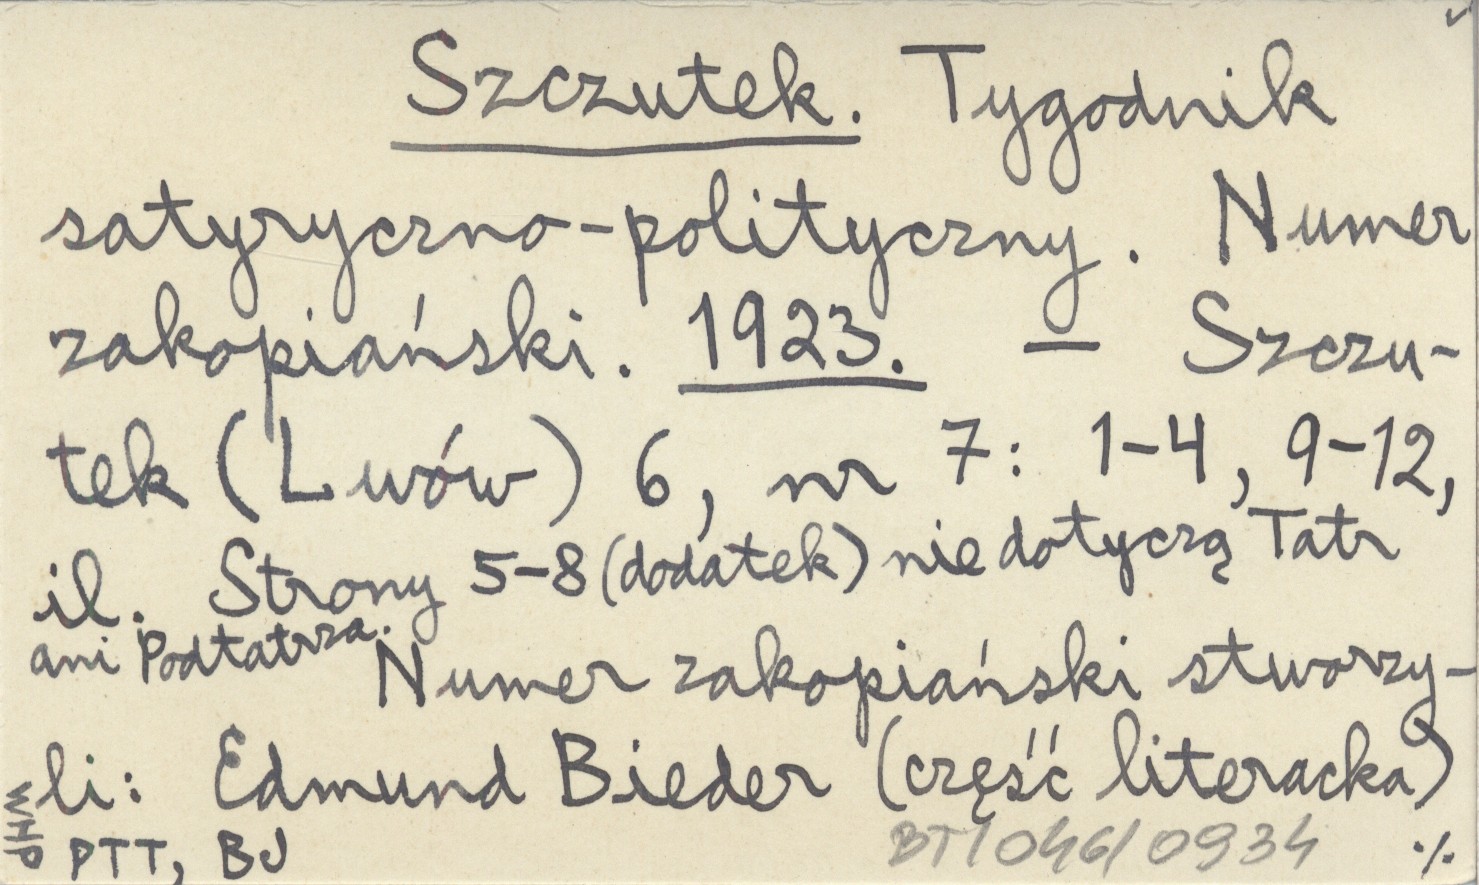 Szczutek. Tygodnik
satyryczno-polityczny. Numer
zakopiański. 1923. — Szczu-
tek (Lwów) 6, nr 7: 1-4, 9-12,
il. Strony 5-8 (dodatek) nie dotyczą Tatr
ani Podtatrza.
Numer zakopiański stworzy-
li: Edmund Bieder (część literacka)
WHP
PTT, BJ
BT/046/0934
./.